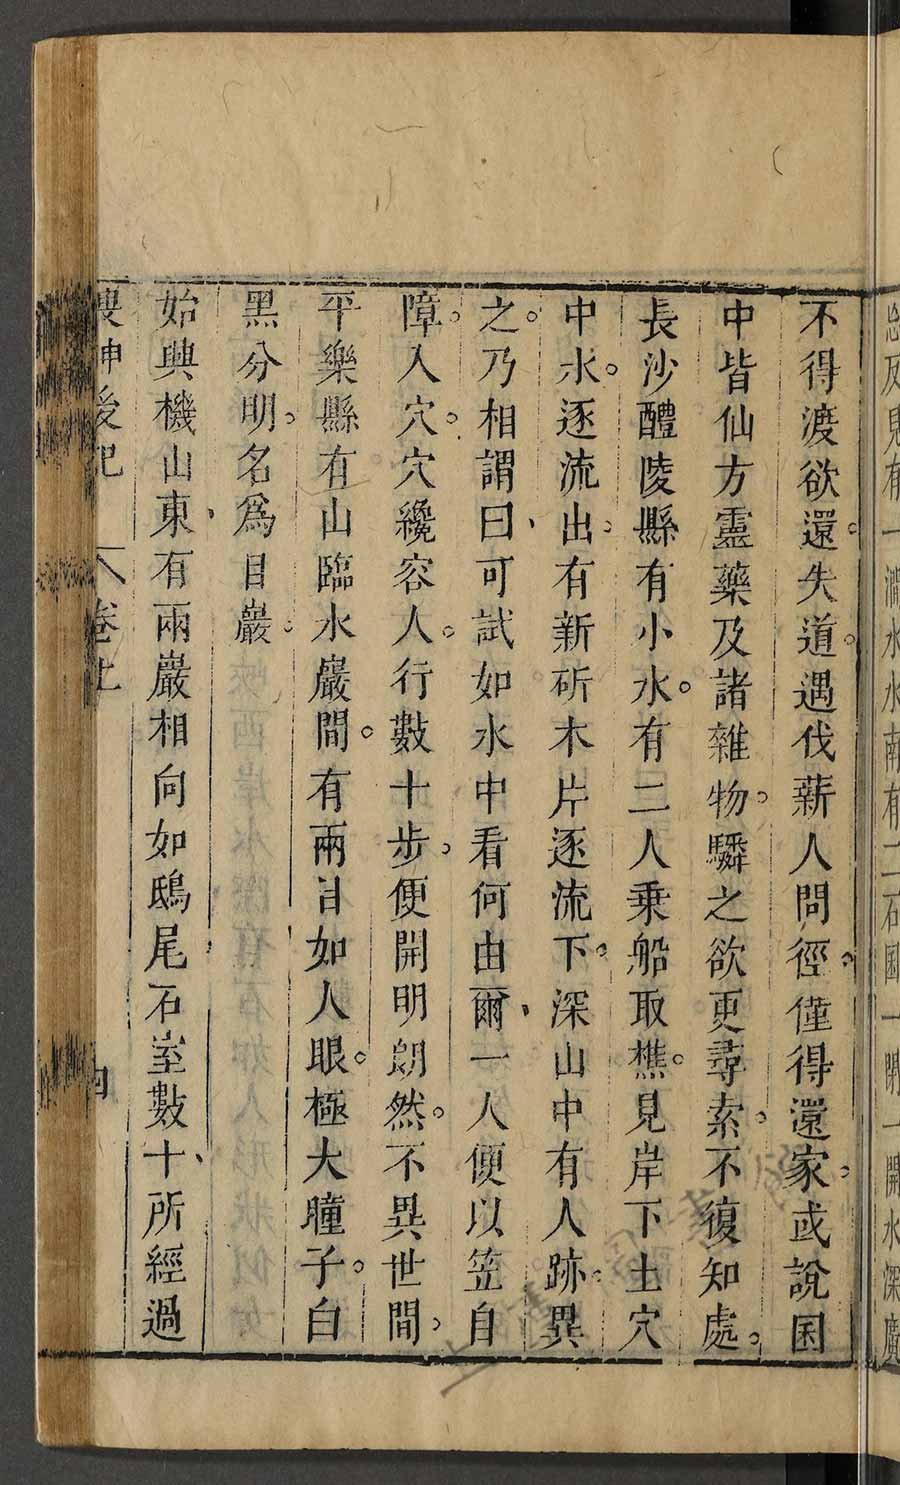 忽反見有一澗水水南有二石囷一閉一開水深廣
不得渡欲還。失道。遇伐薪人問徑。僅得還家。或說囷
中皆仙方靈藥及諸雜物。驎之欲更尋索。不復知處。
長沙醴陵縣有小水。有二人乗船取樵。見岸下土穴
中水。逐流出。有新斫木片逐流下。深山中有人跡。異
之。乃相謂曰、可試如水中看何由爾、一人便以笠自
障。入穴。穴纔容人。行數十步。便開明朗然。不異世間。
平樂縣有山臨水巖間。有兩目如人眼。極大瞳子。白
黑分明。名爲目巖。
始興機山東、有兩巖相向如鴟尾、石室數十、所經過
搜神後記 卷上 四